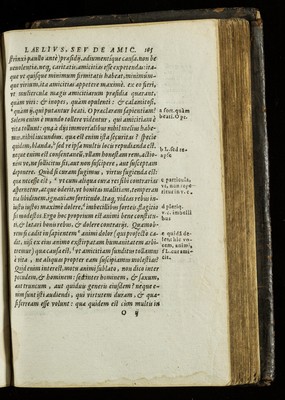 LAELIVS, SEV DE AMIC. 105
strinxi paulo ante) præsidij, adiumentique causa, non be
neuolentia, neq; caritatis, amicitias esse expetendas: ita-
que ut quisque minimum firmitatis habeat, minimum-
que virium, ita amicitias appetere maxime. ex eo fieri,
ut mulierculæ magis amicitiarum præsidia quærant,
quàm viri: & inopes, quàm opulenti: & calamitosi,
quàm ij, qui putantur beati. O præclaram sapientiam!
Solem enim è mundo tollere videntur, qui amicitiam è
vita tollunt: qua à dijs immortalibus nihil melius habe-
mus, nihil iucundius. quæ est enim ista securitas? specie
quidem blanda, sed re ipsa multis locis repudianda est.
neque enim est consentaneum, ullam honestam rem, actio-
nem ue, ne sollicitus sis, aut non suscipere, aut susceptam
deponere. Quòd si curam fugimus, virtus fugienda est:
quæ necesse est, ut cum aliqua cura res sibi contrarias
aspernetur, atque oderit, ut bonitas malitiam, temperan
tia libidinem, ignauiam fortitudo. Itaq; videas rebus in-
iustis iustos maxime dolere, imbecillibus fortes, flagitio
sis modestos. Ergo hoc proprium est animi bene constitu
ti, & lætari bonis rebus, & dolere contrarijs. Quamob-
rem si cadit in sapientem animi dolor (qui profectò ca-
dit, nisi ex eius animo exstirpatam humanitatem arbi-
tremur) quæ causa est, ut amicitiam funditus tollamus
è vita, ne aliquas propter eam suscipiamus molestias?
Quid enim interest, motu animi sublato, non dico inter
pecudem, & hominem: sed inter hominem, & saxum,
aut truncum, aut quiduis generis eiusdem? neque e-
nim sunt isti audiendi, qui virtutem duram, & qua-
si ferream esse volunt: quæ quidem est cum multis in
O ij